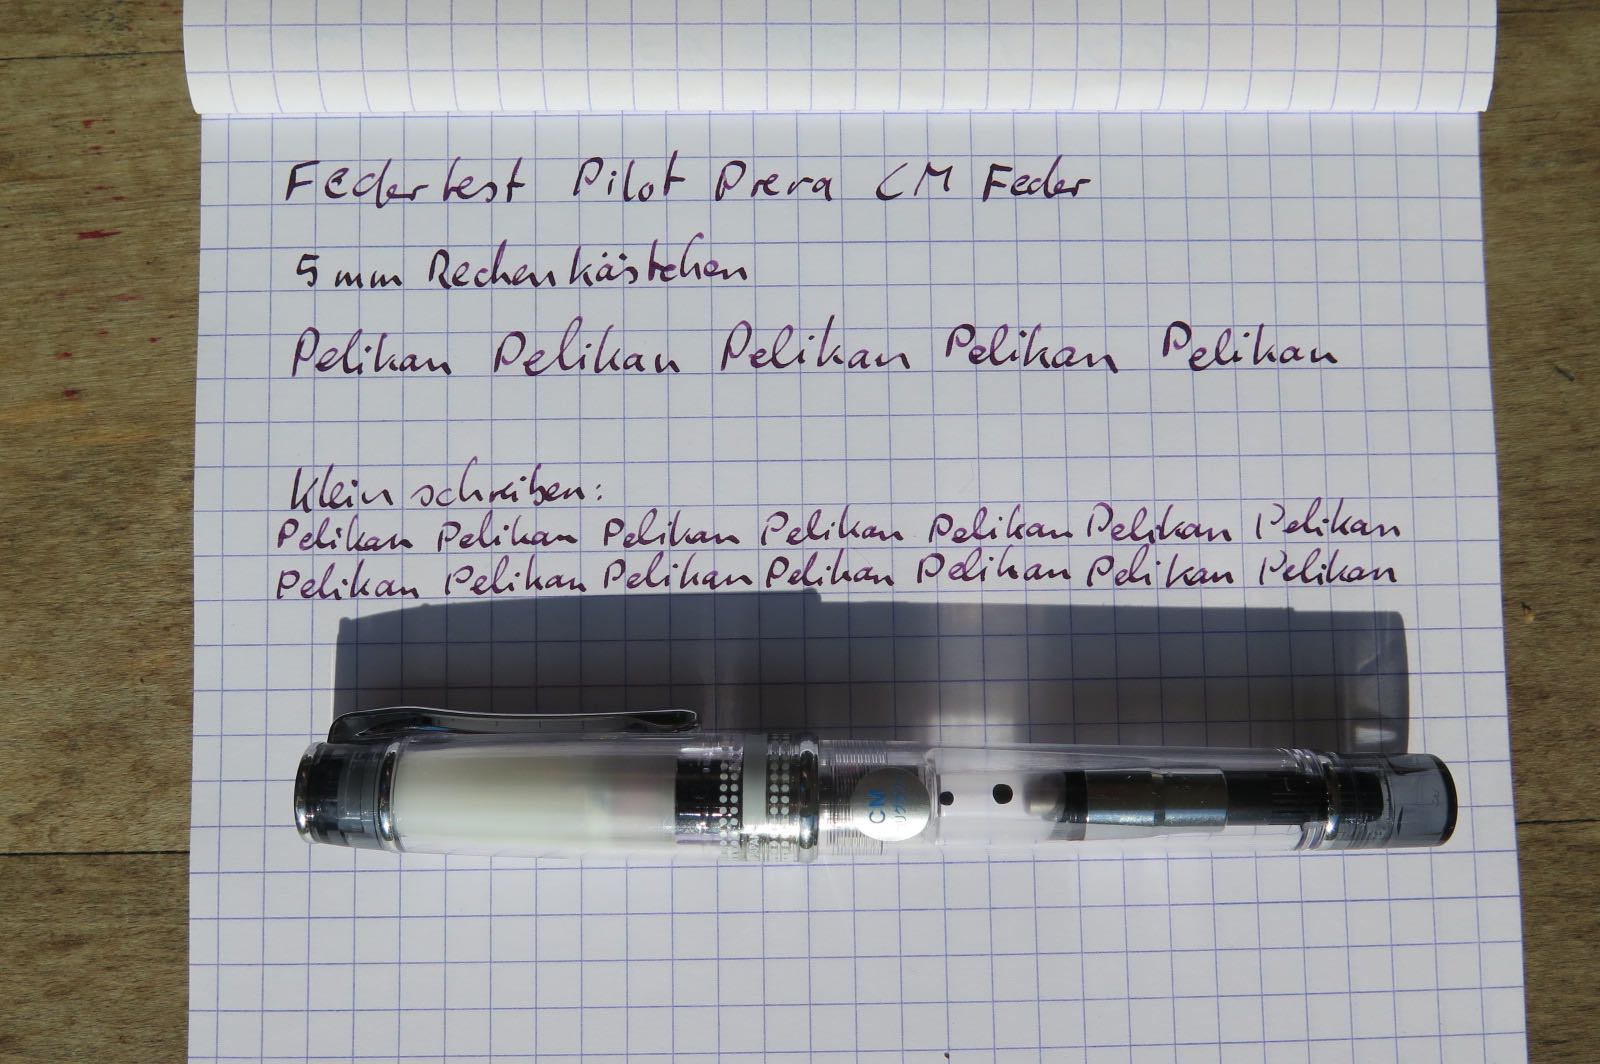 Federtest Pilot Prera CM Feder
5 mm Rechenkästchen
Pelikan Pelikan Pelikan Pelikan Pelikan
Klein schreiben:
Pelikan Pelikan Pelikan Pelikan Pelikan Pelikan Pelikan
Pelikan Pelikan Pelikan Pelikan Pelikan Pelikan Pelikan
CM